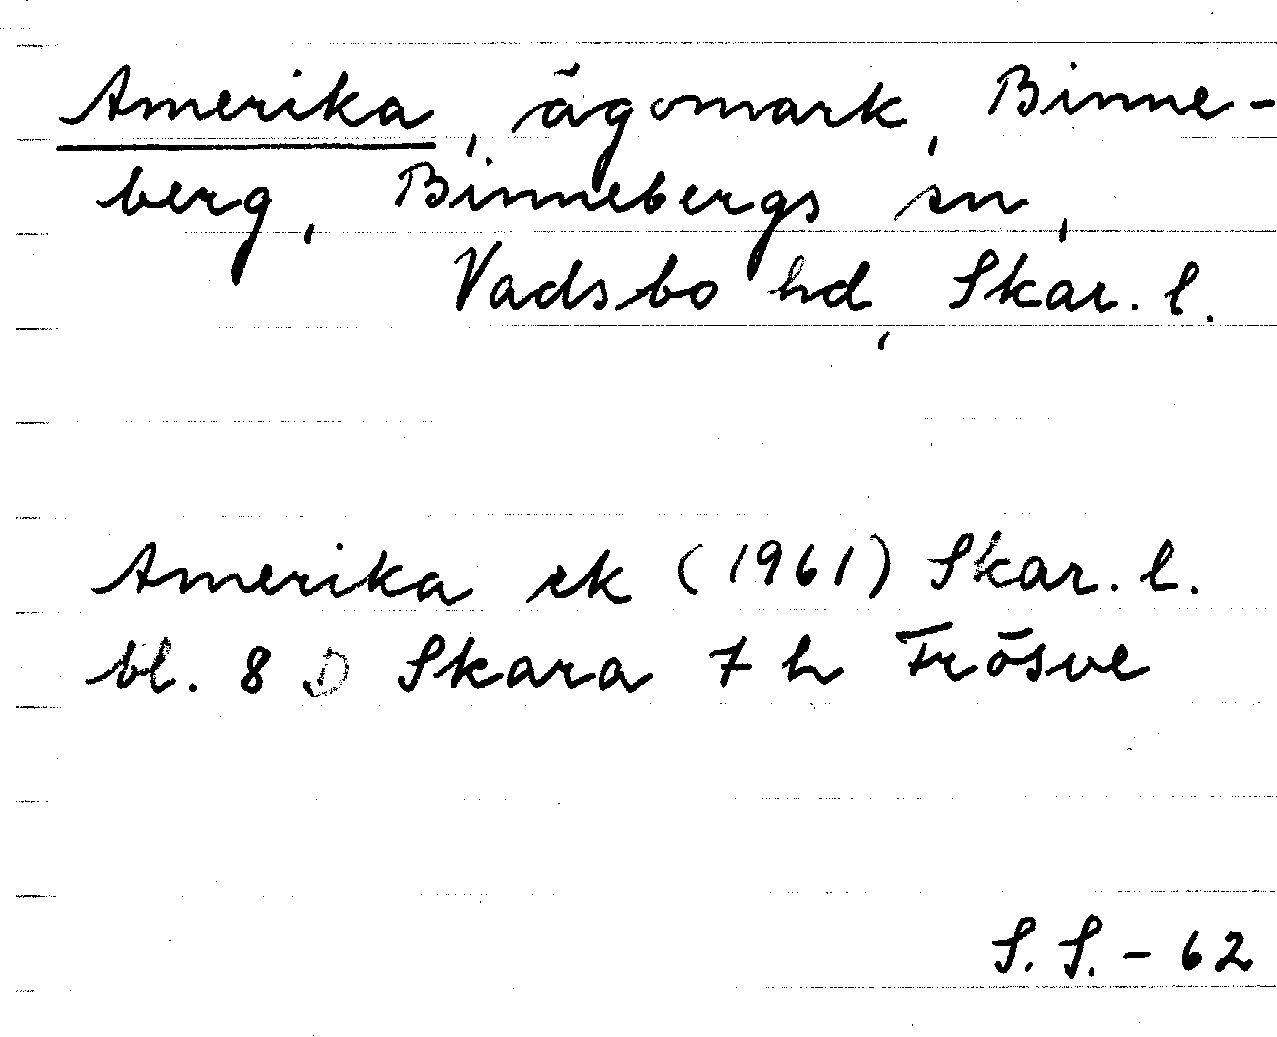 Amerika, ägomark, Binne-
berg, Binnebergs sn,
Vadsbo hd, Skar. l.
Amerika ek (1961) Skar. l.
bl. 8 D Skara 7 h Frösve
S. S. - 62